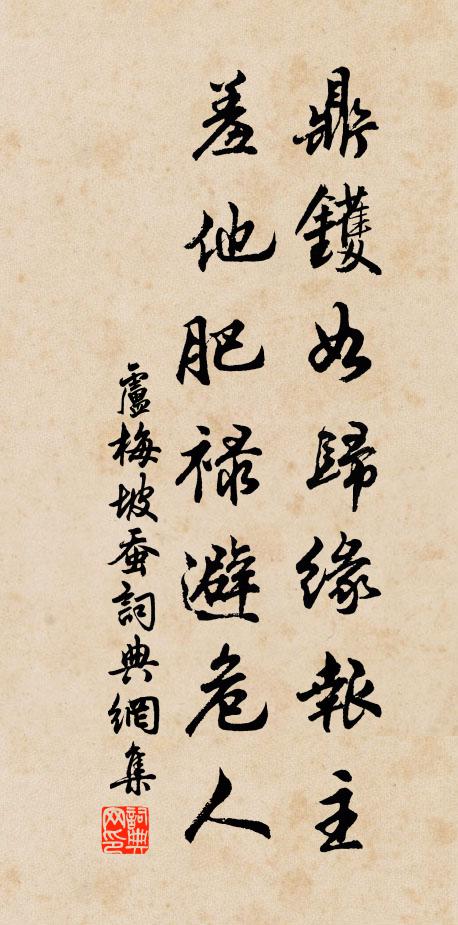 鼎鑊如歸緣報主
羞他肥禄避危人
盧梅坡蚕詞典網集
詞典網印